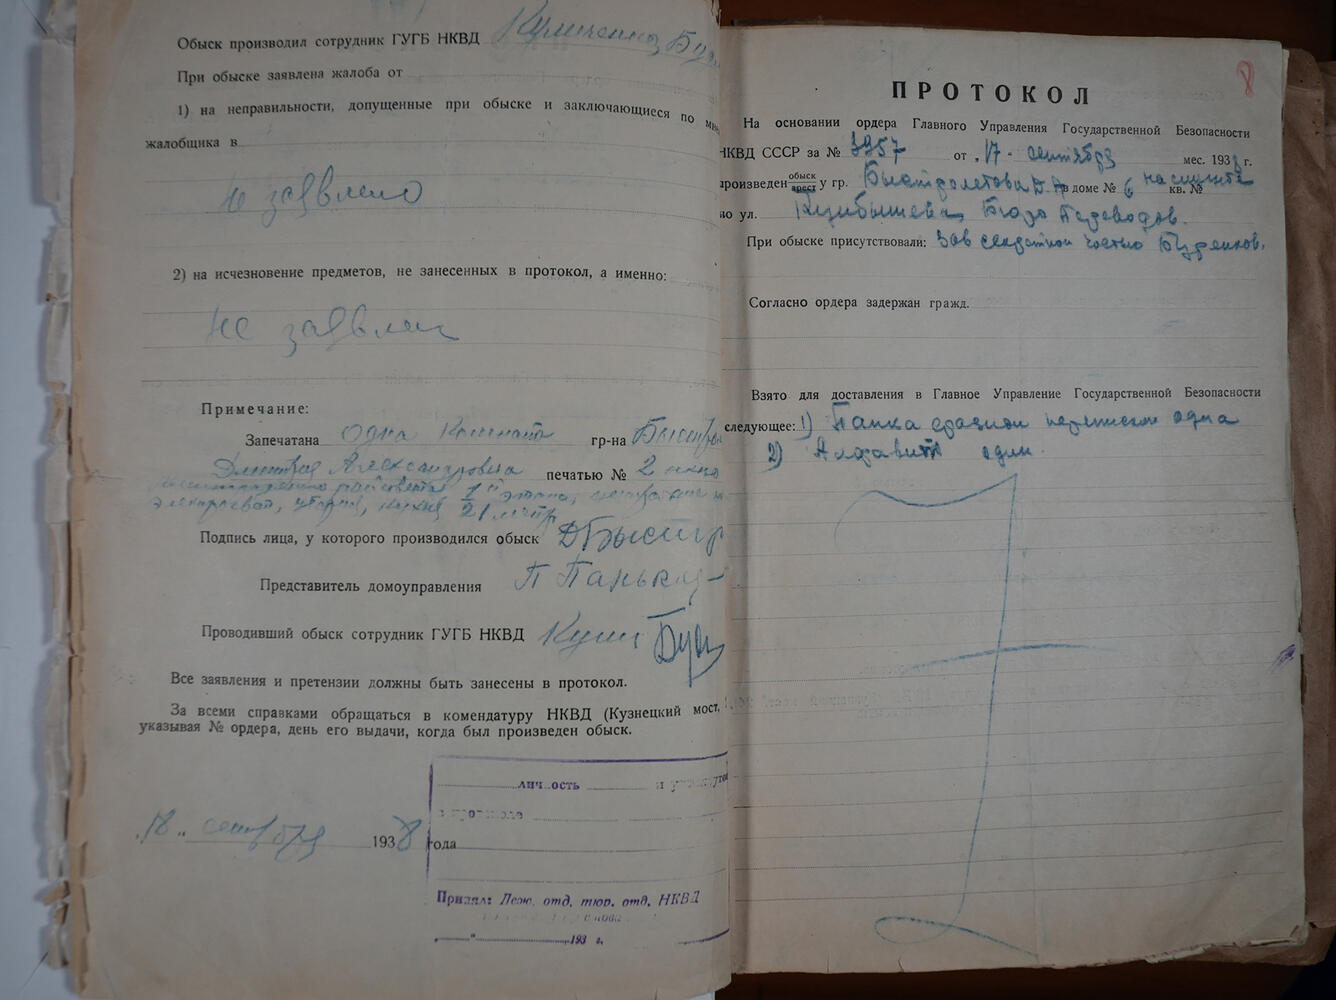 Обыск производил сотрудник ГУГБ НКВД
При обыске заявлена жалоба от
1) на неправильности, допущенные при обыске и заключающиеся по
жалобщика в
не заявлено
2) на исчезновение предметов, не занесенных в протокол, а именно:
не заявлен
Примечание:
Запечатана одна комната гр-на
Дмитрия Александровича печатью № 2
1й
21 метр
Подпись лица, у которого производился обыск ДБыстр
Представитель домоуправления П Панько
Проводивший обыск сотрудник ГУГБ НКВД
Все заявления и претензии должны быть занесены в протокол.
За всеми справками обращаться в комендатуру НКВД (Кузнецкий мост,
указывая № ордера, день его выдачи, когда был произведен обыск.
„18„ сентября 1938 года
Принял: Деж. отд. тюр. отд. НКВД
„ “ 193 г.
8
ПРОТОКОЛ
На основании ордера Главного Управления Государственной Безопасности
НКВД СССР за № 3957 от „17- сентября мес. 1938 г.
произведен обыск арест у гр. Быстролетова Д.А в доме № 6 кв. № на службе
ул. Куйбышева Бюро Переводов.
При обыске присутствовали: Зав секретной частью
Согласно ордера задержан гражд.
Взято для доставления в Главное Управление Государственной Безопасности
следующее: 1) Папка с разной перепиской одна
2) Алфавит один.